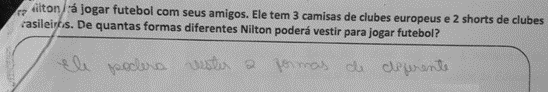 Nilton irá jogar futebol com seus amigos. Ele tem 3 camisas de clubes europeus e 2 shorts de clubes
brasileiros. De quantas formas diferentes Nilton poderá vestir para jogar futebol?
Ele podera vestir 2 formas de diferente